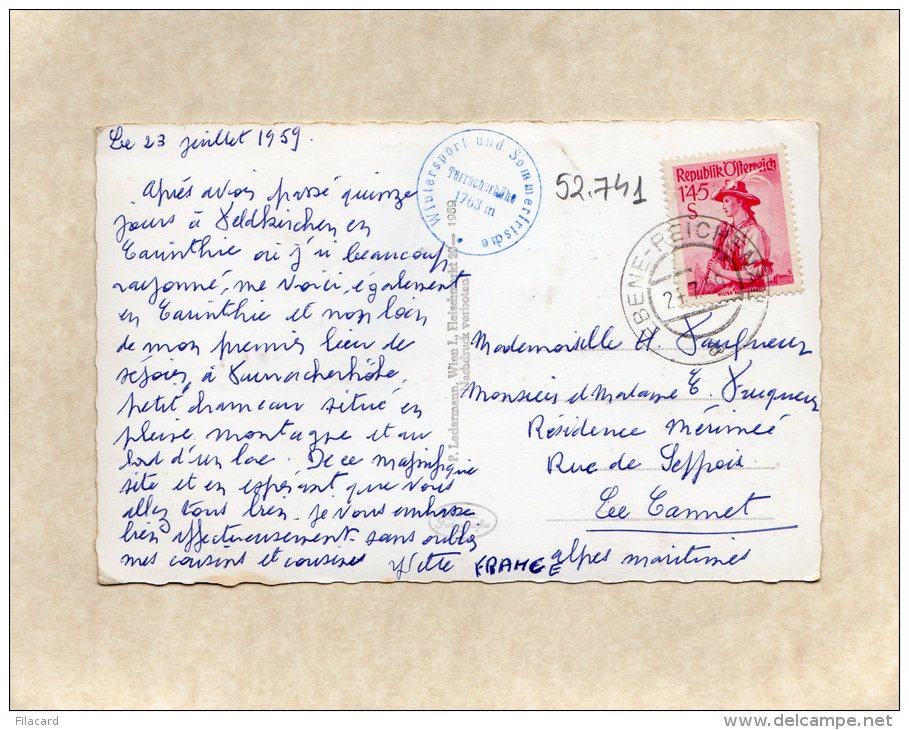 Le 23 juillet 1959.
Après avoir passé quinze
jours à Feldkirchen en
Carinthie où j'ai beaucoup
rayonné, me voici, également
en Carinthie et non loin
de mon premier lieu de
séjour, à Turracherhöhe,
petit hameau situé en
pleine montagne et au
bord d'un lac. De ce magnifique
site et en espérant que vous
allez tous bien je vous embrasse
bien affectueusement sans oublier
mes cousins et cousines Yvette
Wintersport und Sommerfrische
Turracherhöhe
1763 m
P. Ledermann, Wien I., Fleischmarkt 20 — 1959
Nachdruck verboten
52.741
Republik Österreich
1'45
S
EBENE-REICHENAU
Mademoiselle H.
Monsieur et Madame E.
Résidence Mérimée
Rue de
Le Cannet
alpes maritimes
FRANCE
Filacard
www.delcampe.net